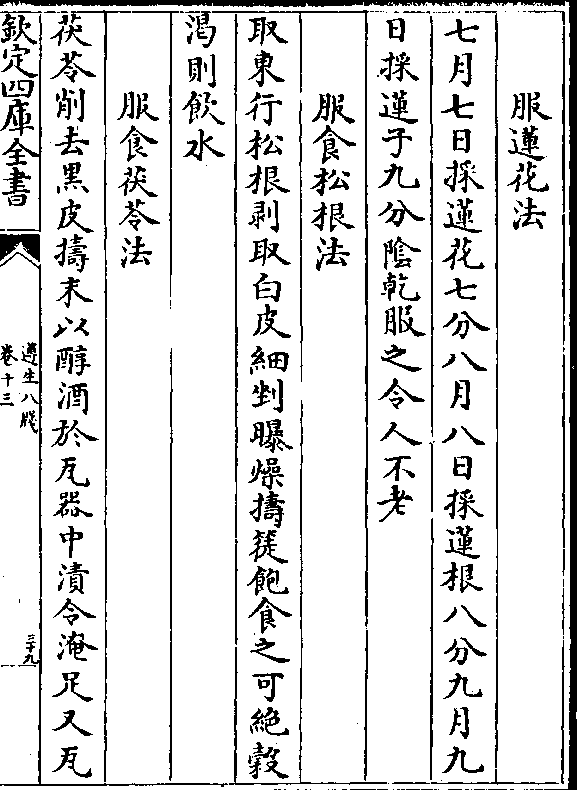 服蓮花法
七月七日採蓮花七分八月八日採蓮根八分九月九
日採蓮子九分陰乾服之令人不老
服食松根法
取東行松根剥取白皮細剉曝燥擣篵飽食之可絶穀
渴則飲水
服食茯苓法
茯苓削去黑皮擣末以醇酒於瓦器中漬令淹足又瓦
欽定四庫全書
遵生八牋
卷十三
三十九